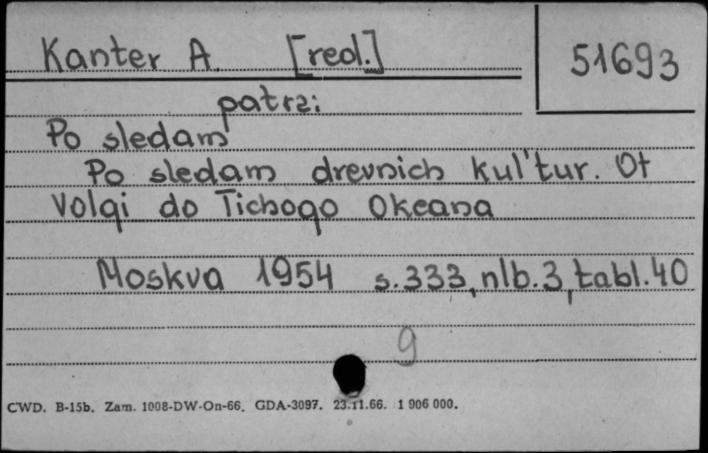 Kanter A. [red.]
51693
patrz:
Po sledam
Po sledam drevnich kul'tur. Ot
Volgi do Tichogo Okeana
Moskva 1954 s.333, nlb.3, tabl.40
9
CWD. B-15b. Zam. 1008-DW-On-66. GDA-3097. 23.11.66. 1 906 000.